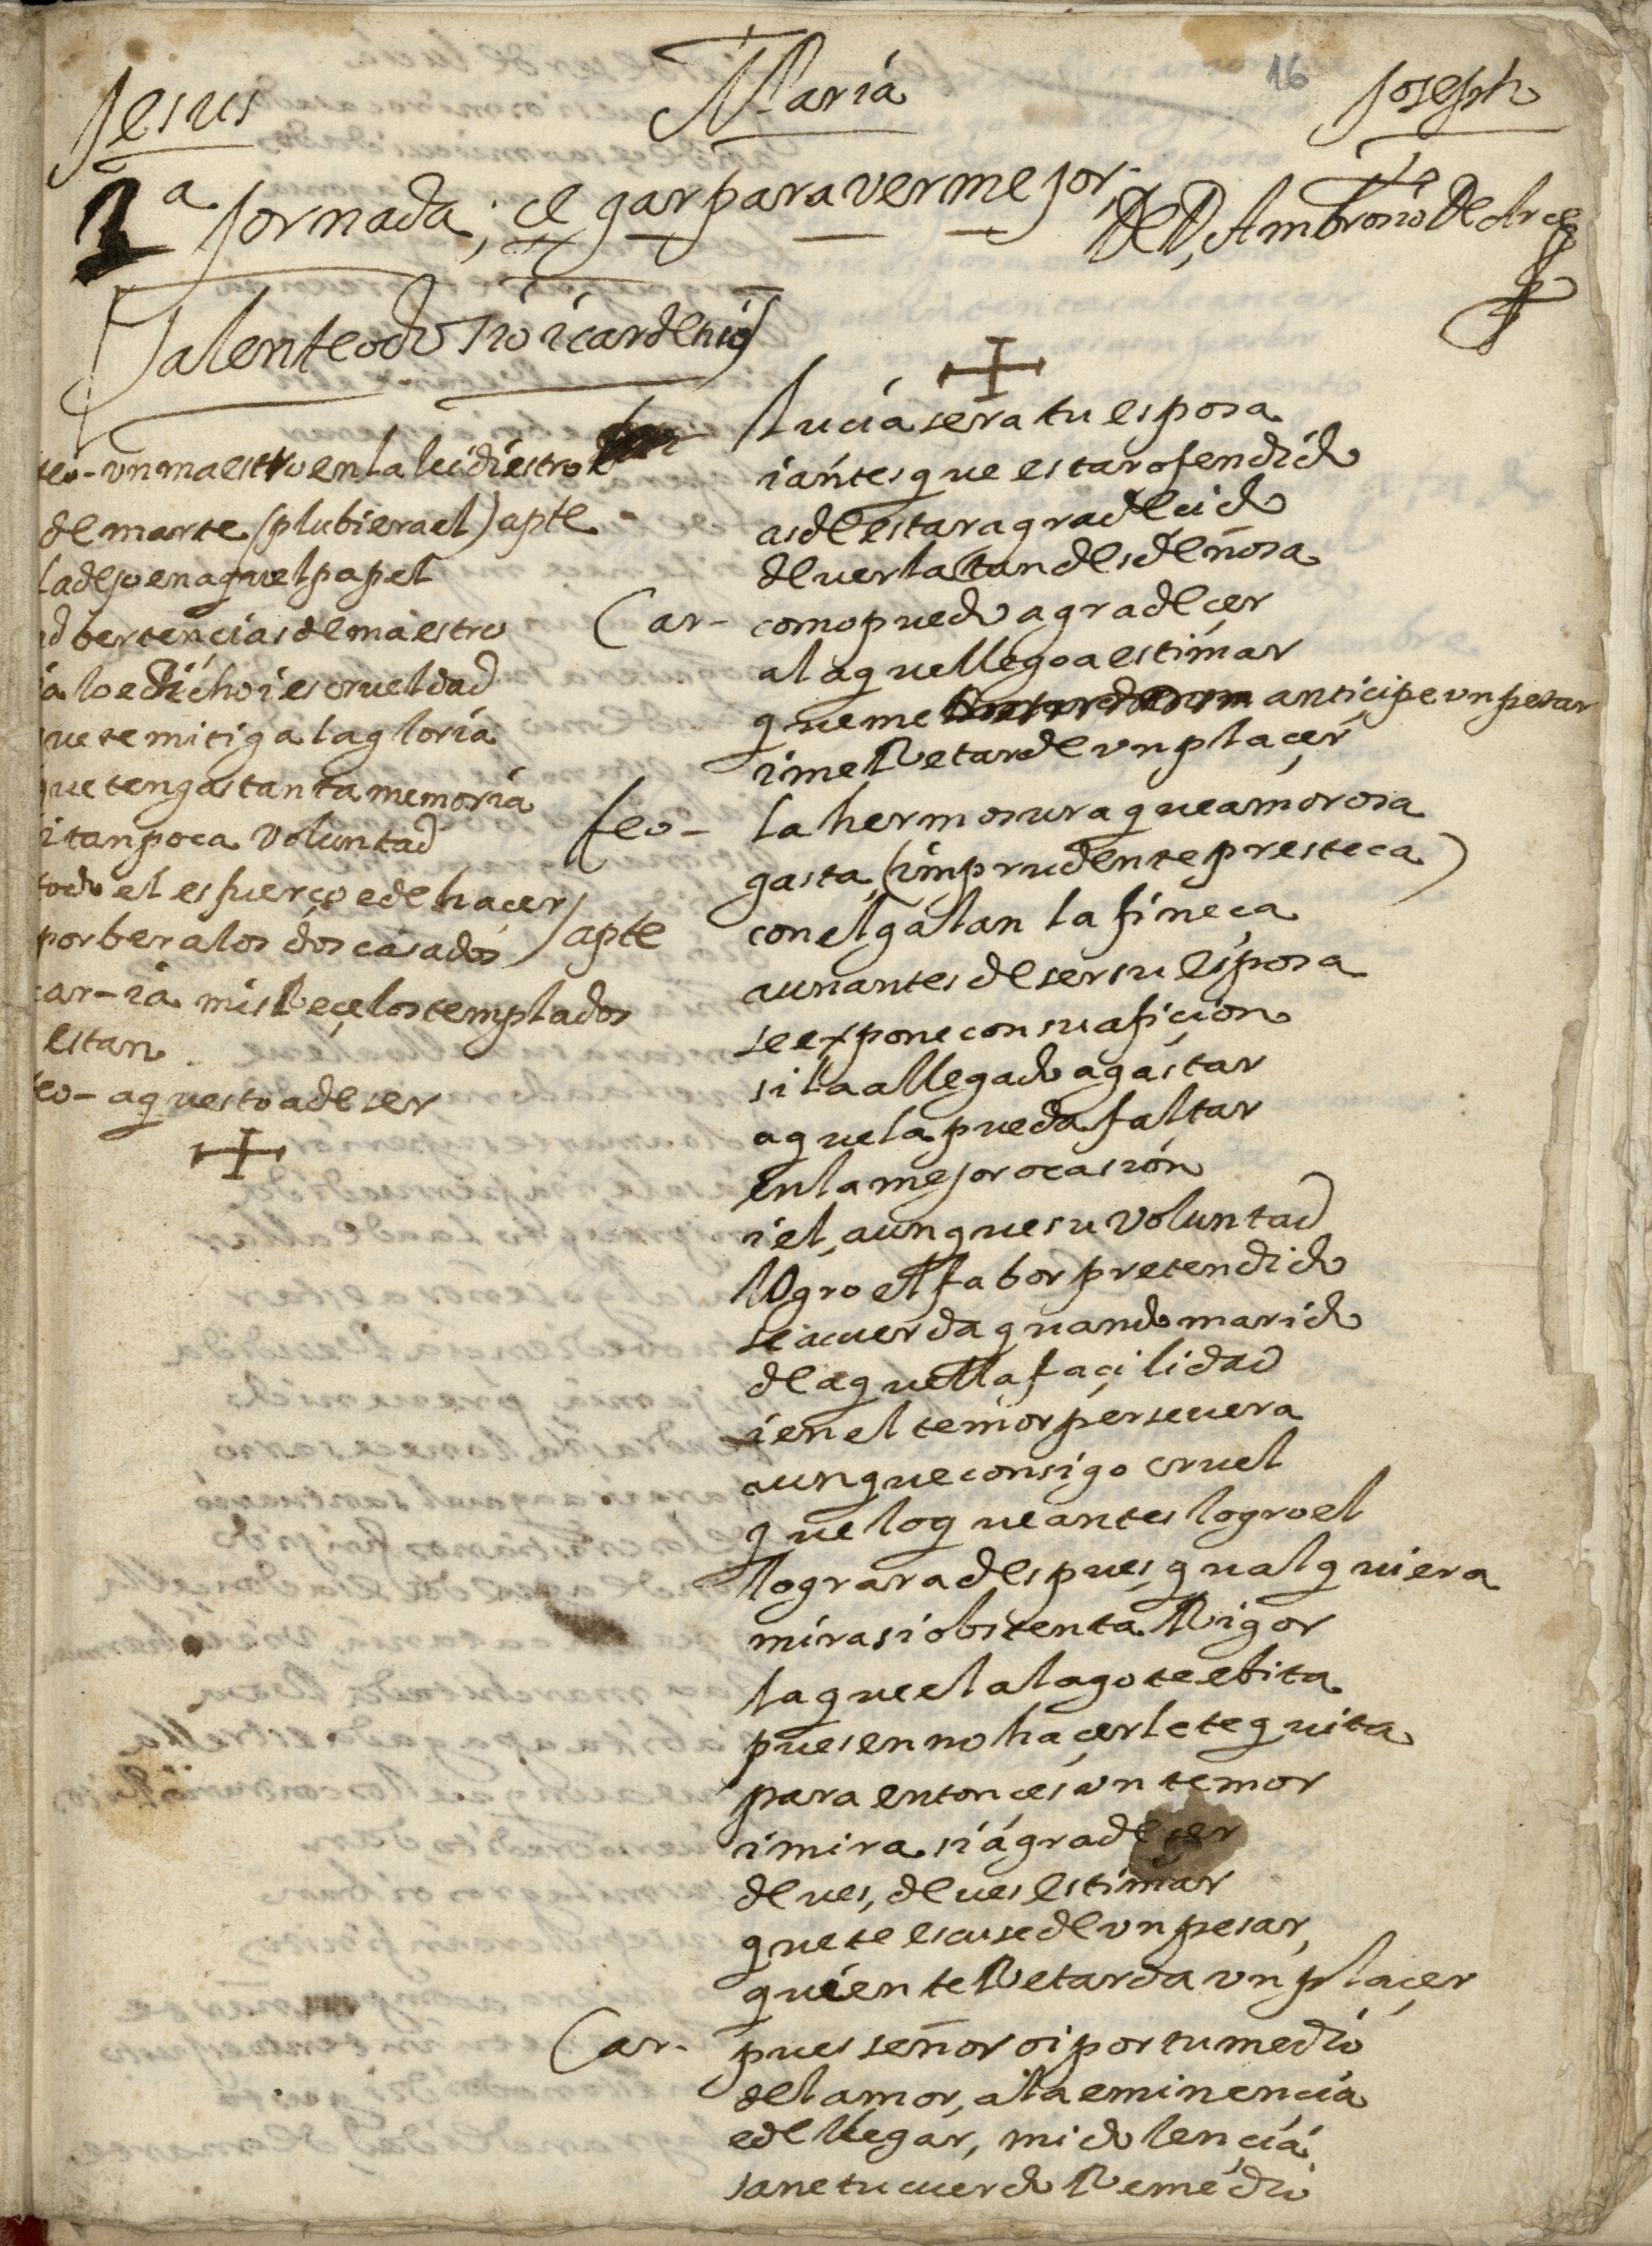 Jesus Maria Joseph
16
2ª Jornada; cegar para ver mejor, de D, Ambrosio de Arce
Salen teodosio i cardenio
lucia sera tu esposa
i antes que estar ofendido
as de estar agradecido
de verla tan desdeñosa
Car- como puedo agradeçer
a la que llego a estimar
que me anticipe un pesar
i me Retarde un plaçer
teo- la hermosura que amorosa
gasta, (imprudente presteça)
con el galan la fineça
aun antes de ser su esposa
se expone con su afiçion
si la a llegado a gastar
a que la pueda faltar
en la mejor ocasion
i el, aunque su voluntad
logro el fabor pretendido
se acuerda quando marido
de aquella façilidad
i en el temor persevera
aunque consigo cruel
que lo que antes logro el
lograra despues qualquiera
mira si obstenta Rigor
la que el alago te ebita
pues en no haçerle te quita
para entonçes un temor
i mira si a gradeçer
deves, deves estimar
que te escuse de un pesar,
quien te Retarda un plaçer
Car- pues señor oi por tu medio
del amor, a la eminencia
e de llegar, mi dolençia
sane tu cuerdo Remedio
teo- un maestro en la lid diestro
de marte (plubiera el) apte
la dejo en aquel papel
adbertençias de maestro
ia lo e dicho i es crueldad
que te mitiga la gloria
que tengas tanta memoria
i tan poca voluntad
todo el esfuerço e de haçer
por ber a los dos casados apte
car- ia mis Reçelos templados
estan
teo- aquesto a de ser